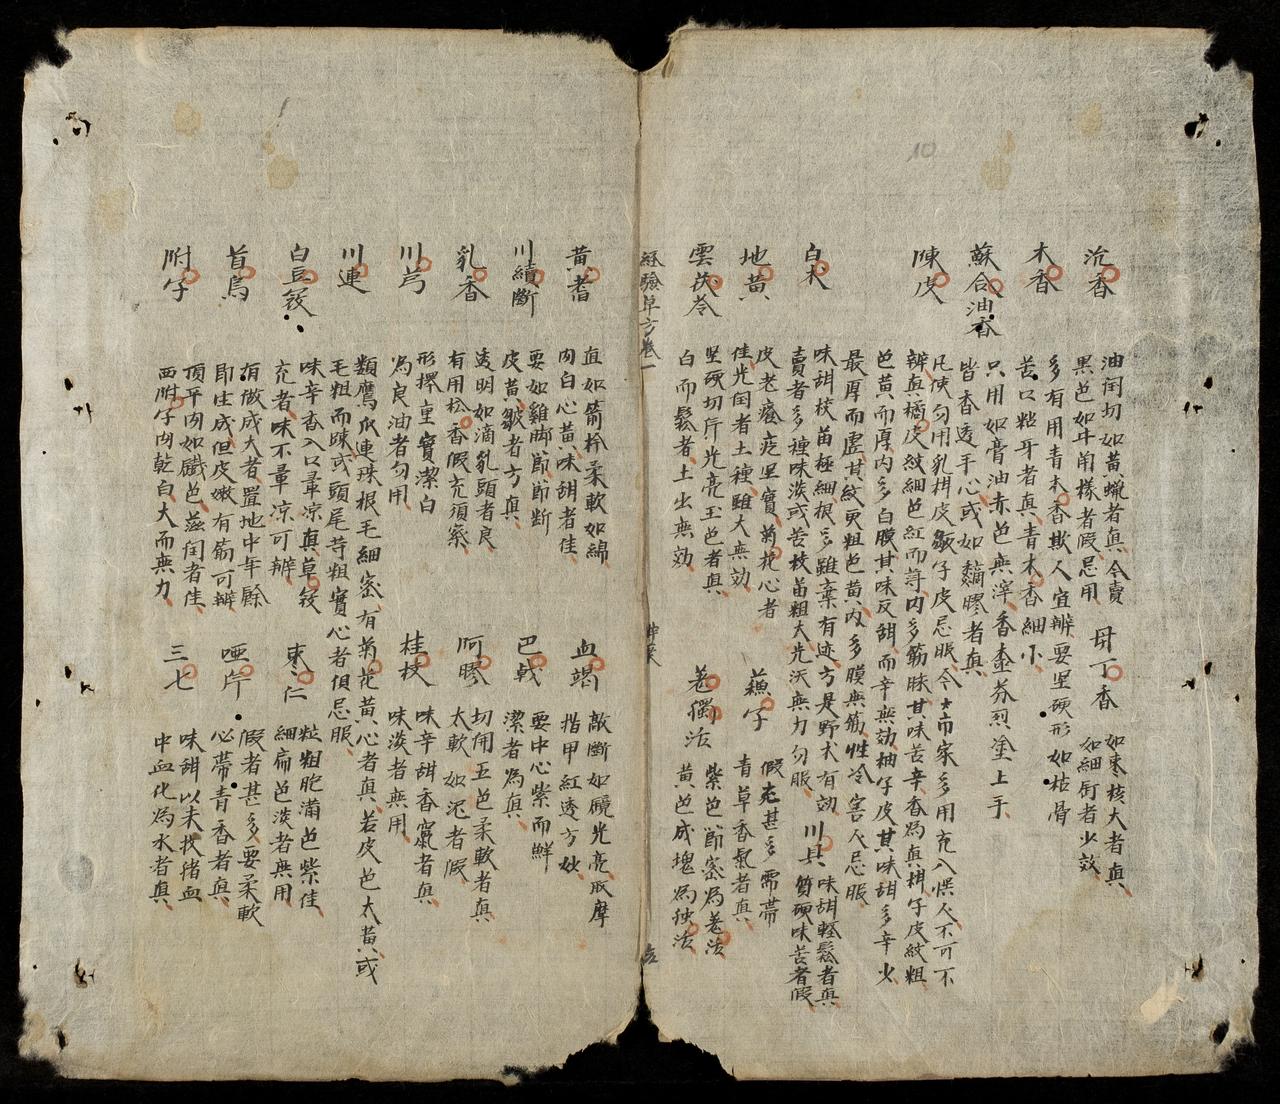 10
沉香
油閏切如黃蠟者真今賣
黑色如牛角樣者假忌用
母丁香
如棗核大者真
如細釘者少效
木香
多有用青木香欺人宜辨要坚硬形如枯骨
苦口粘牙者真青木香細小
蘇合油香
只用如膏油赤色無滓香奎芬烈塗上手
皆香透手心或如黐膠者真
陳皮
凡使勿用乳柑皮皺子皮忌服今市家多用充入悞人不可不
辨真橘皮紋細色紅而薄内多筋脉其味苦辛香為真柑子皮紋粗
色黃而厚内多白膜其味反甜而辛無効柚子皮其味甜多辛火
最厚而虛其紋更粗色黃内多膜無筋性冷害人忌服
白术
味甜枝苗極細根多雖棄有迹方是野术有効
賣者多種味淡或苦枝苗粗大先沃無力勿服
川貝
味甜輕鬆者真
質硬味苦者假
地黃
皮老瘦疙里實菊花心者
佳光閏者土種雖大無効
蘓子
假充甚多需帶
青草香氣者真
雲茯苓
坚硬切片光亮玉色者真
白而鬆者土出無効
羗獨活
紫色節密為羗活
黃色成塊為独活
經驗草方卷一
黃耆
直如箭杆柔軟如綿
内白心黃味甜者佳
血竭
敲斷如鏡光亮取摩
指甲紅透方妙
川續斷
要如雞脚節節斷
皮黃皺者方真
巴戟
要中心紫而鮮
潔者為真
乳香
透明如滴乳頭者良
有用松香假充須察
阿膠
切開五色柔軟者真
太軟如泥者假
川芎
形摞重實潔白
為良油者勿用
桂枝
味辛甜香竄者真
味淡者無用
川連
類鷹爪連珠根毛細密有菊花黃心者真若皮色太黃或
毛粗而踈或頭尾䓁粗實心者俱忌服
白豆蔲
味辛香入口暈凉真草蔲
充者味不暈凉可辨
棗仁
粒粗胞滿色紫佳
細扁色淡者無用
首烏
有做成大者置地中年餘
即生成但皮嫩有筋可辨
哑片
假者甚多要柔軟
必帶青香者真
附子
頂平肉如鐵色滋閏者佳
西附子肉乾白大而無力
三七
味甜以末投猪血
中血化為水者真